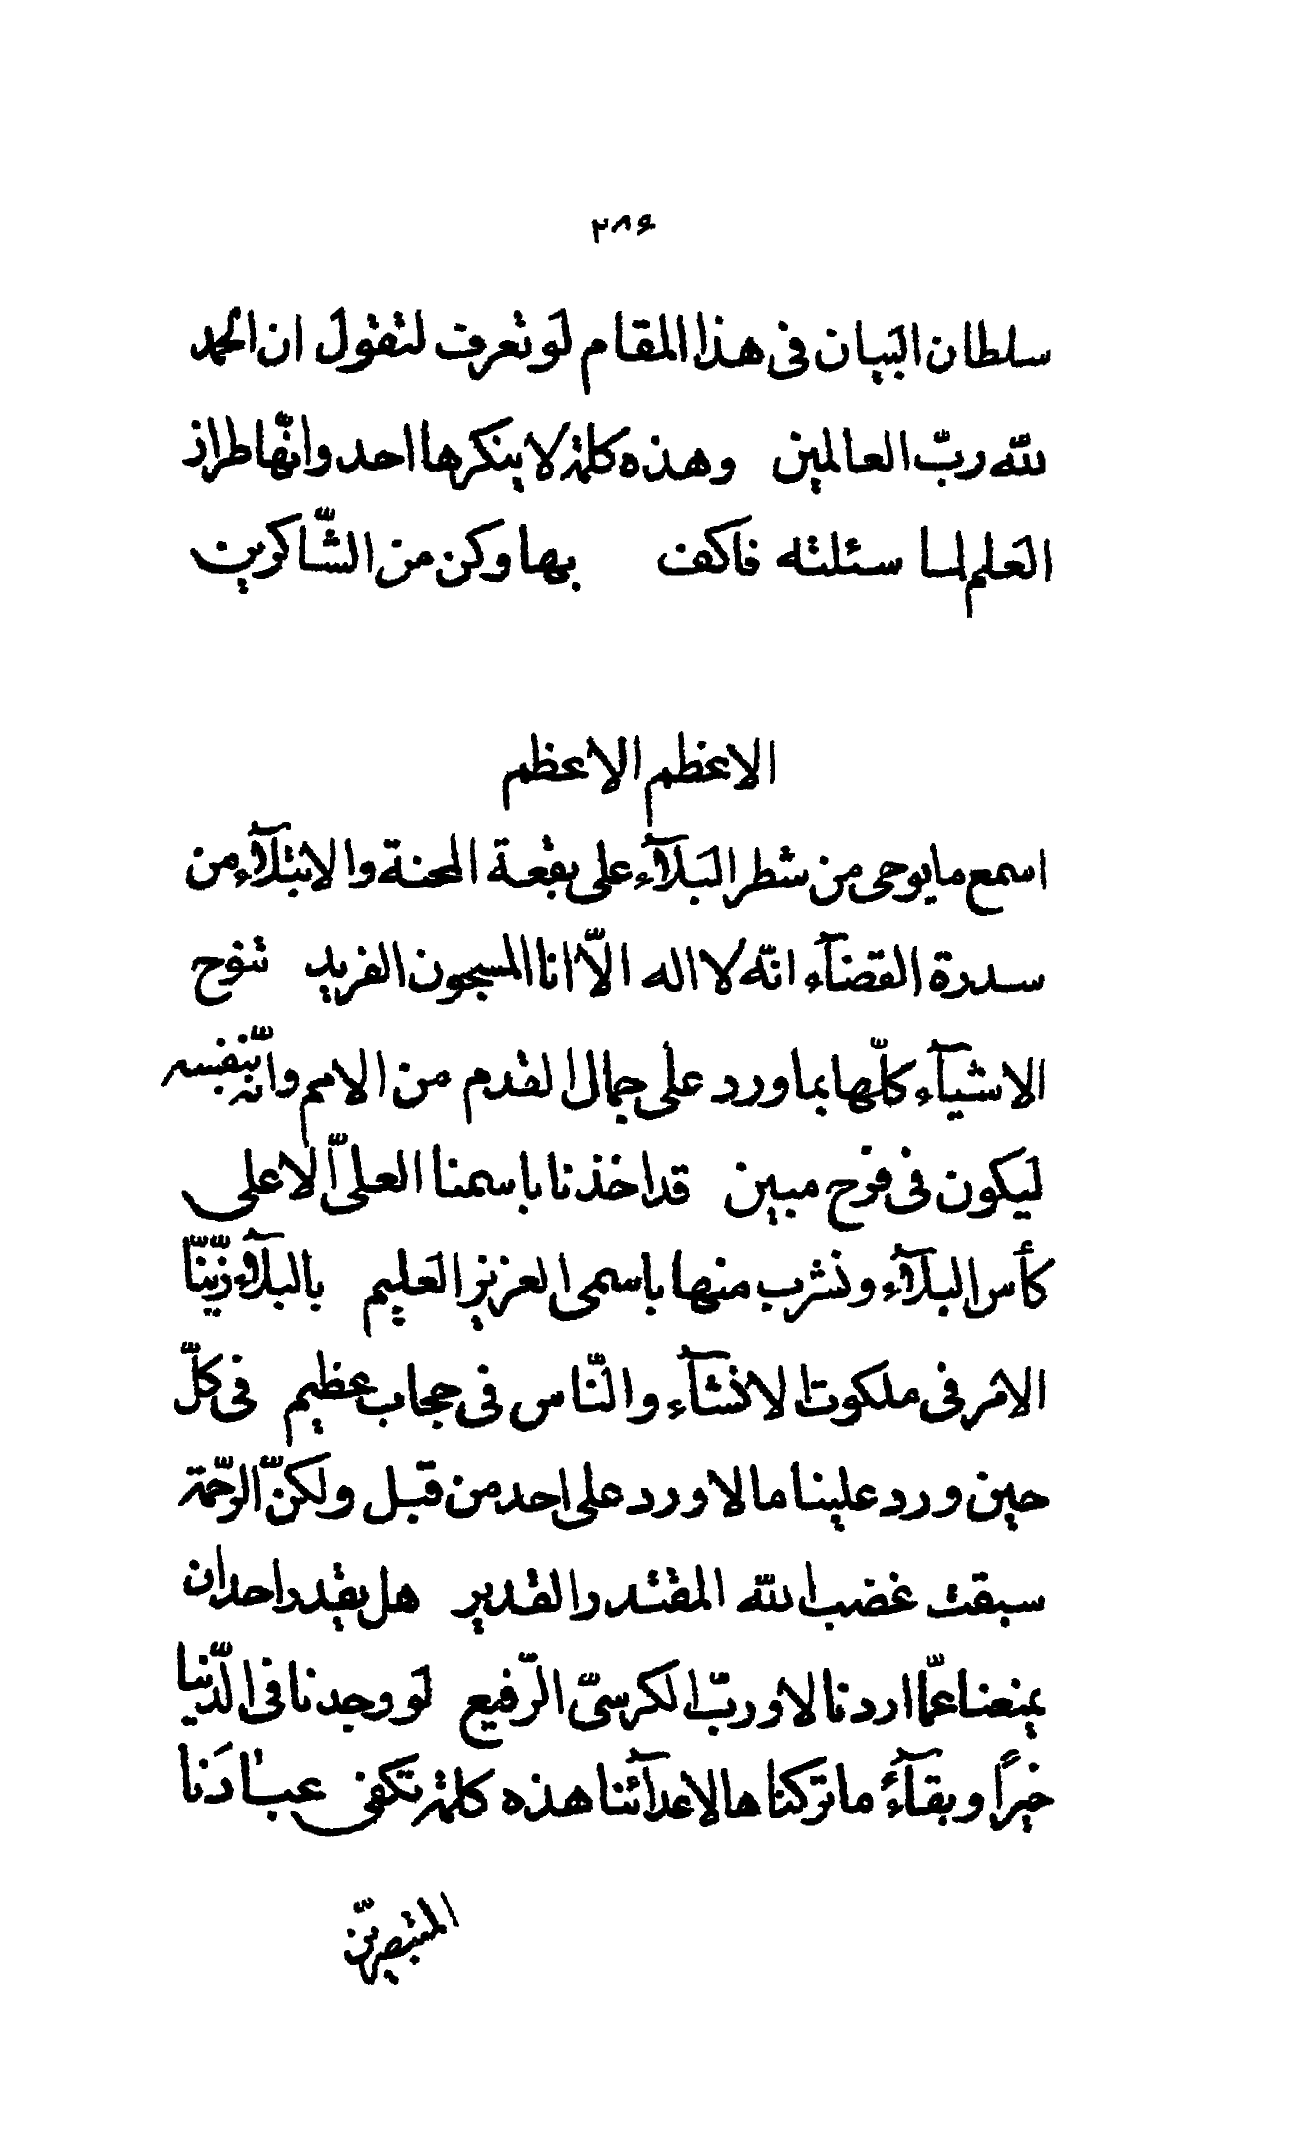 ٢٨٤
سلطان البيان فى هذا المقام لو تعرف لتقول ان الحمد
للّه ربّ العالمين وهذه كلمة لا ينكرها احد وانّها طراز
العلم لما سئلته فاكف بها وكن من الشّاكرين
الاعظم الاعظم
اسمع ما يوحى من شطر البلآء على بقعة المحنة والابتلآء من
سدرة القضآء انّه لا اله الّا انا المسجون الفريد تنوح
الاشيآء كلّها بما ورد على جمال القدم من الامم وانّه بنفسه
ليكون فى فرح مبين قد اخذنا باسمنا العلىّ الاعلى
كأس البلآء ونشرب منها باسمى العزيز العليم بالبلآء زيّنّا
الامر فى ملكوت الانشآء والنّاس فى حجاب عظيم فى كلّ
حين ورد علينا ما لا ورد على احد من قبل ولكنّ الرّحمة
سبقت غضب اللّه المقتدر القدير هل يقدر احد ان
يمنعنا عمّا اردنا لا وربّ الكرسىّ الرّفيع لو وجدنا فى الدّنيا
خيرًا وبقآءً ما تركناها لاعدآئنا هذه كلمة تكفى عبادنا
المتبصّرين